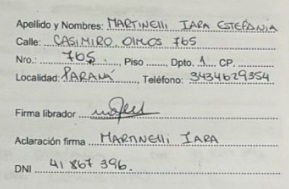 Apellido y Nombres: MARTINELLI IARA ESTEFANIA
Calle: CASIMIRO OLMOS 765
Nro.: 765 Piso Dpto. 1 CP.
Localidad: PARANÁ Teléfono: 3434629354
Firma librador
Aclaración firma MARTINELLI IARA
DNI 41 867 396.